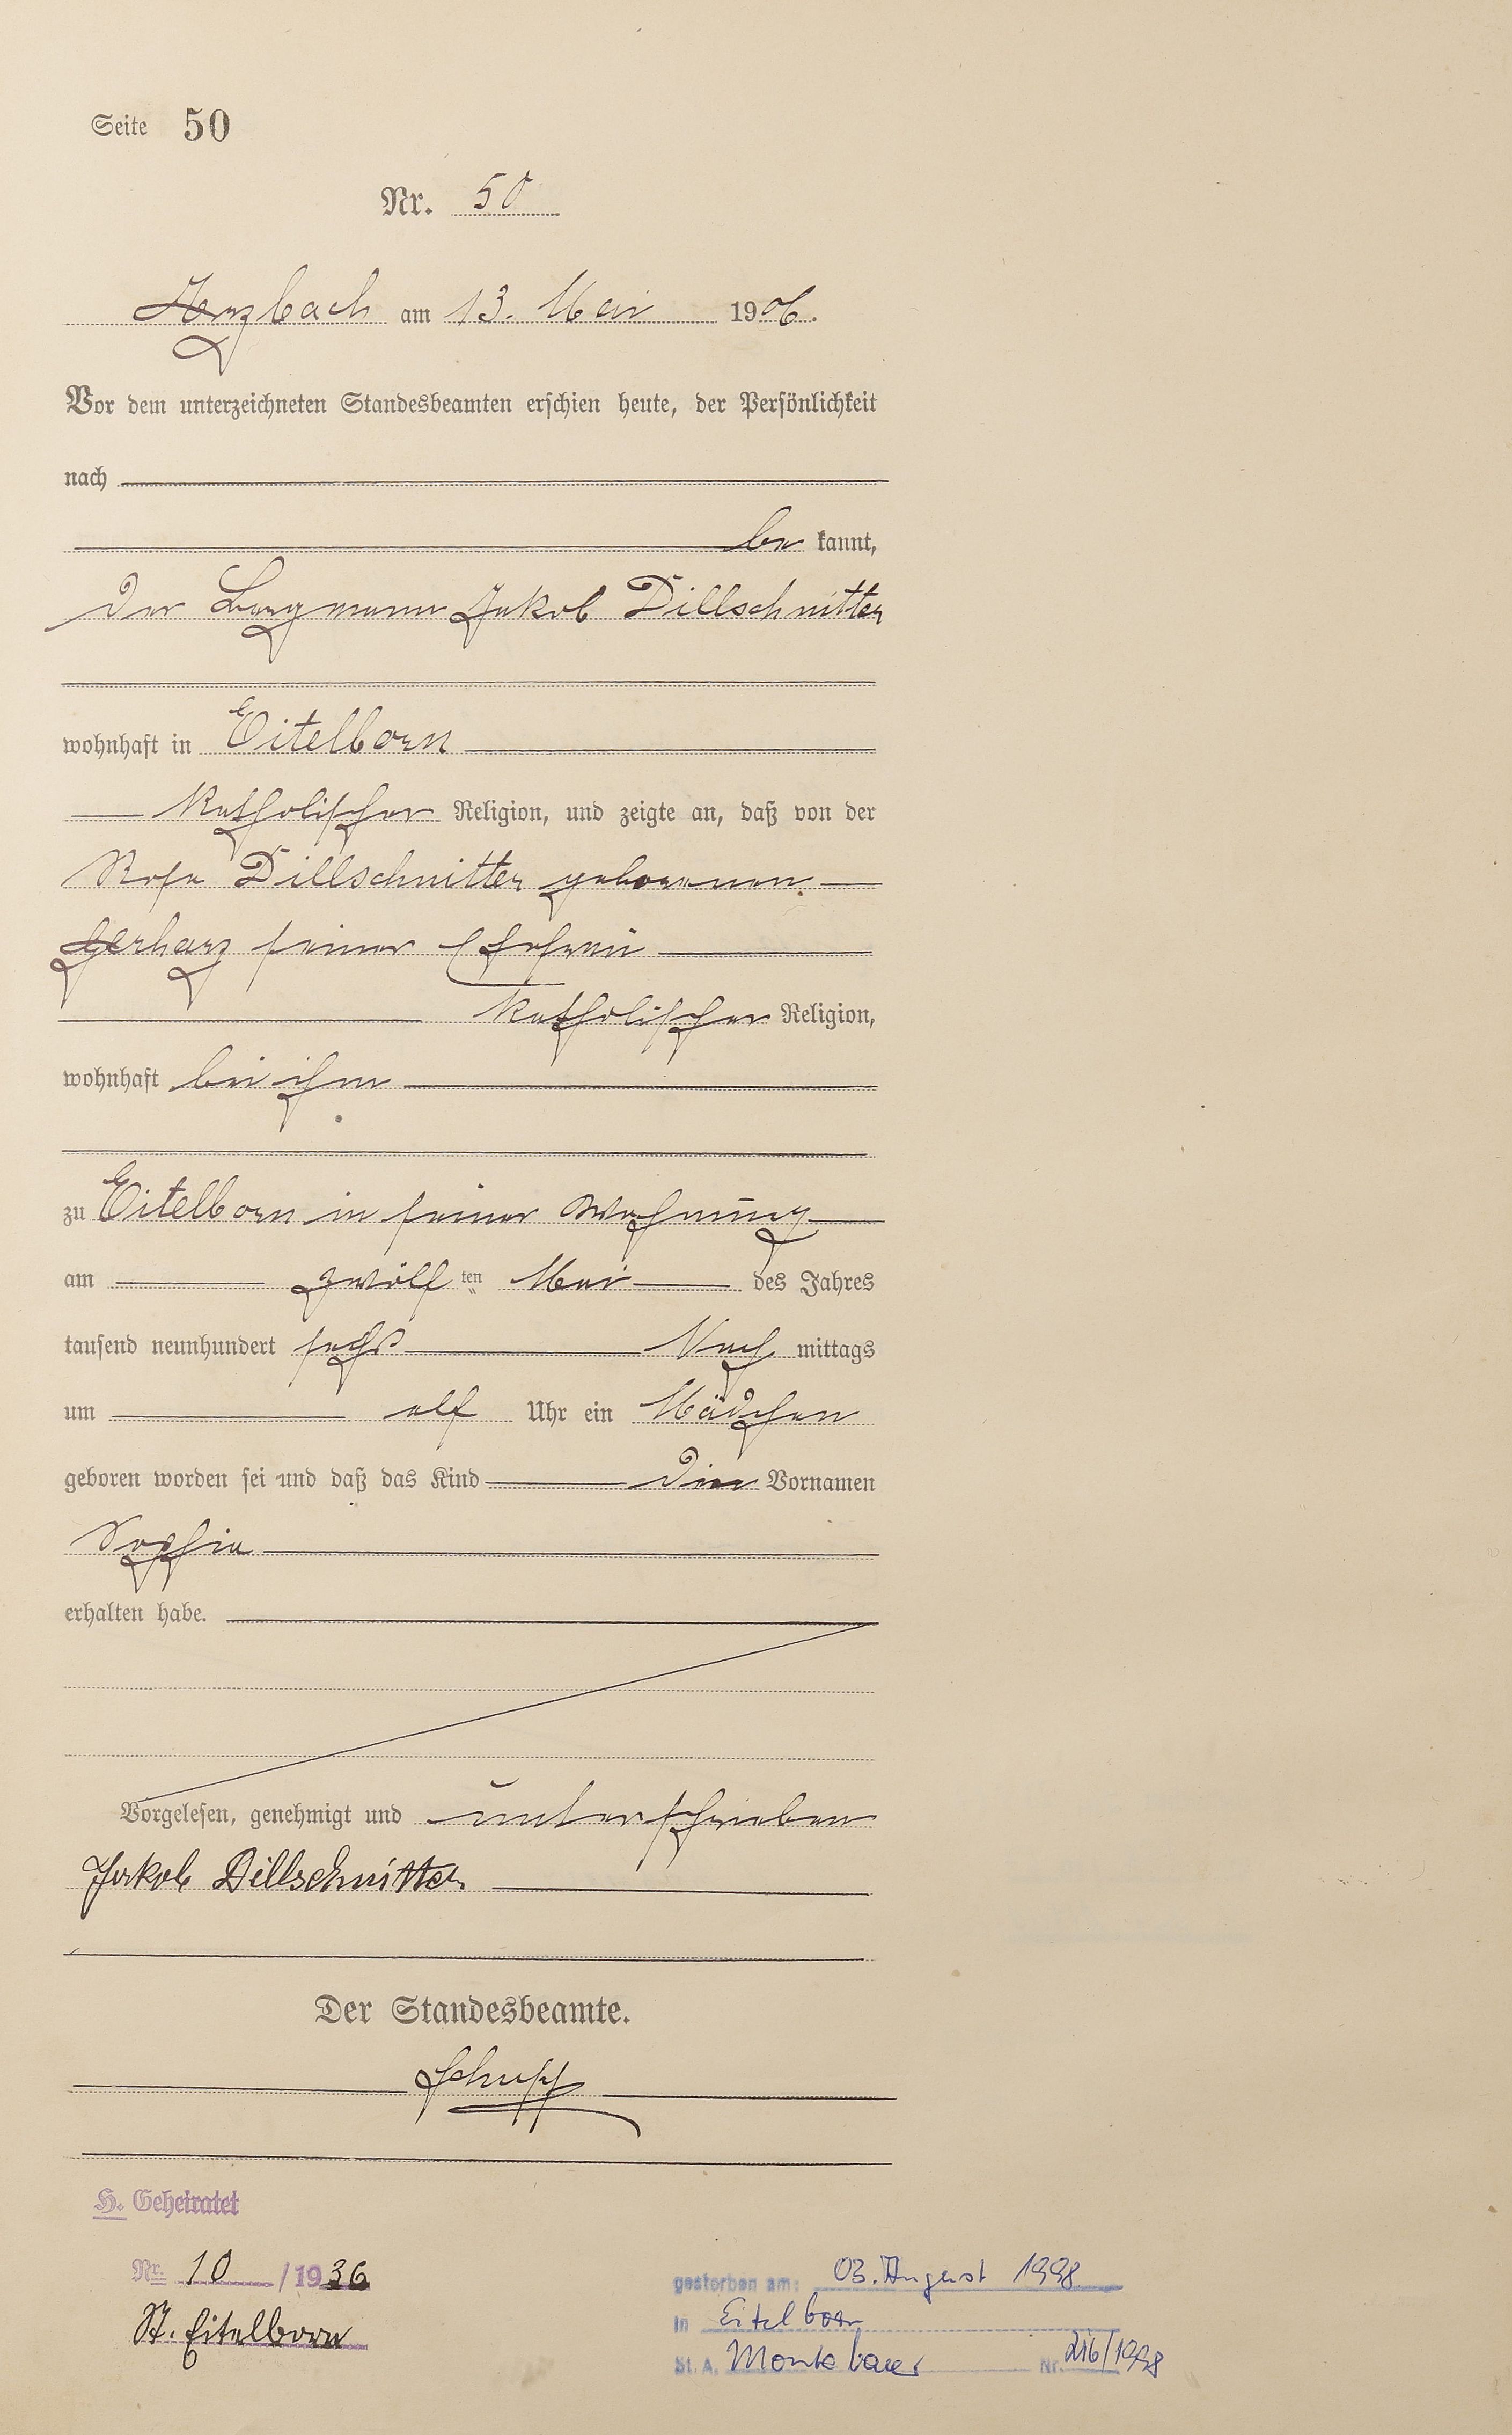 Seite 50
Nr. 50
Arzbach am 13. Mai 1906.
Vor dem unterzeichneten Standesbeamten erschien heute, der Persönlichkeit
nach
be kannt,
der Bergmann Jakob Dillschnitter
wohnhaft in Eitelborn
katholischer Religion, und zeigte an, daß von der
Rosa Dillschnitter geborenen
Gerharz seiner Ehefrau
katholischer Religion,
wohnhaft bei ihm
zu Eitelborn in seiner Wohnung
am zwölf ten Mai des Jahres
tausend neunhundert sechs Nach mittags
um elf Uhr ein Mädchen
geboren worden sei und daß das Kind den Vornamen
Sophia
erhalten habe.
Vorgelesen, genehmigt und unterschrieben
Jakob Dillschnitter
Der Standesbeamte.
Schupp
H. Geheiratet
Nr. 10 /1936
St. Eitelborn
gestorben am: 03. August 1998
in Eitelborn
St. A. Montabaur Nr 216/1998